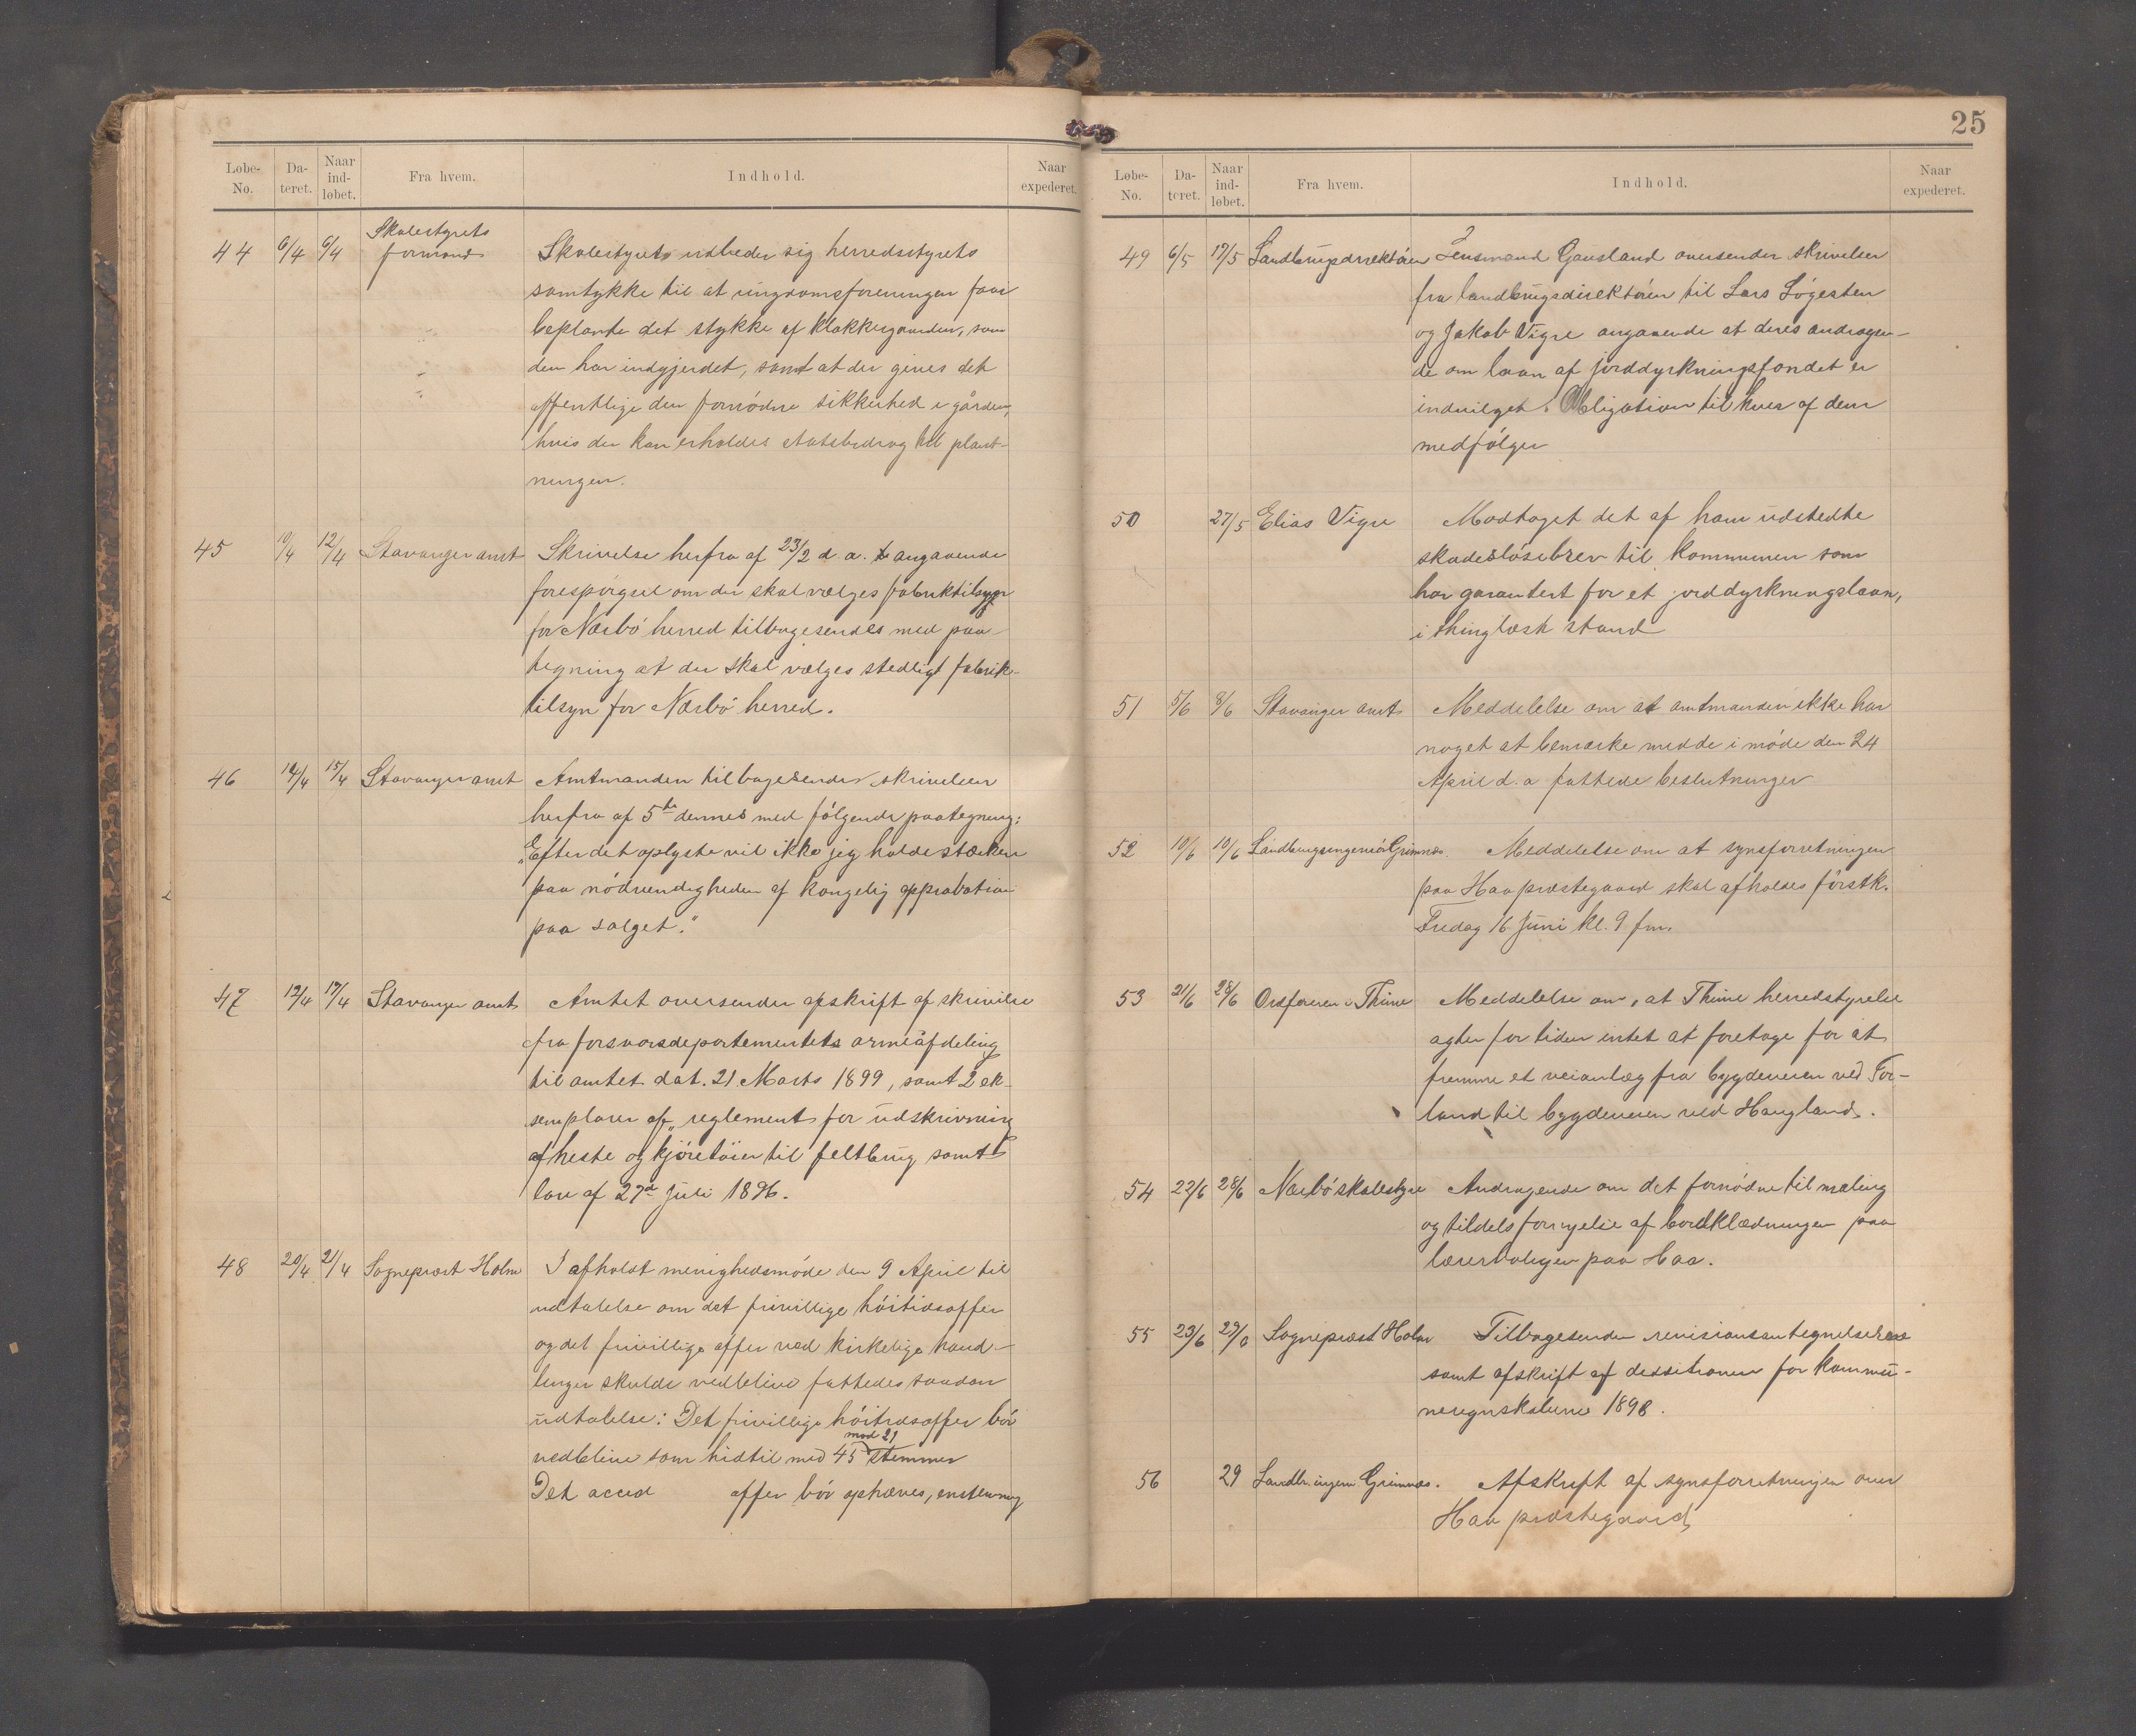 Løbe-No. Dateret. Naar indløbet. Fra hvem. Indhold. Naar expederet.
44 6/4 6/4 Skolestyrets formand Skolestyret udbeder sig herredsstyrets
samtykke til at ungdomsforeningen faar
beplante det stykke af klokkergaarden, som
den har indgjerdet, samt at der gives det
offentlige den fornødne sikkerhed i gården,
hvis der kan erholdes statsbidrag til plant-
ningen.
45 10/4 12/4 Stavanger amt Skrivelse herfra af 23/2 d. a. angaaende
forespørgsel om der skal vælges fabriktilsyn
for Nærbø herred tilbagesendes med paa-
tegning at der skal vælges stedligt fabrik-
tilsyn for Nærbø herred.
46 14/4 15/4 Stavanger amt Amtmanden tilbagesender skrivelsen
herfra af 5te dennes med følgende paategning:
"Efter det oplyste vil ikke jeg holde stærken
paa nødvendigheden af kongelig approbation
paa salget."
47 12/4 17/4 Stavanger amt Amtet oversender afskrift af skrivelse
fra forsvarsdepartementets armeafdeling
til amtet dat. 21 Marts 1899, samt 2 ek-
semplarer af „reglement for udskrivning
af heste og kjøretøier til feltbrug samt
lov af 27de Juli 1896.
48 20/4 21/4 Sogneprest Holm I afholdt menighedsmøde den 9 April til
udtalelse om det frivillige høitidsoffer
og det frivillige offer ved kirkelige hand-
linger skulde vedblive fattedes saadan
udtalelse: Det frivillige høitidsoffer bør
vedblive som hidtil med 45 mod 21 stemmer
Det accid offer bør ophæves, enstemmig
25
Løbe-No. Dateret. Naar indløbet. Fra hvem. Indhold. Naar expederet.
49 6/5 17/5 Landbrugsdirektøren Lensmand Gausland oversender skrivelser
fra landbrugsdirektøren til Lars Søgesten
og Jakob Vigre angaaende at deres andragen-
de om laan af jorddyrkningsfondet er
indvilget. Obligation til hver af dem
medfølger
50 27/5 Elias Vigre Modtaget det af ham udstedte
skadesløsebrev til kommunen som
har garantert for et jorddyrkningslaan,
i thinglæst stand
51 5/6 8/6 Stavanger amt Meddelelse om at amtmanden ikke har
noget at bemærke med de i møde den 24
April d. a fattede beslutninger
52 10/6 10/6 Landbrugsingeniør Grimnæs. Meddelelse om at synsforretningen
paa Haa præstegaard skal afholdes førstk.
Fredag 16 Juni kl. 9 fm.
53 21/6 28/6 Ordføreren i Thime Meddelelse om, at Thime herredstyrelse
agter for tiden intet at foretage for at
fremme et veianlæg fra bygdeveien ved For-
land til bygdeveien ved Haugland.
54 22/6 28/6 Nærbø skolestyre Andragende om det fornødne til maling
og tildels fornyelse af bordklædningen paa
lærerboligen paa Haa.
55 23/6 29/6 Sogneprest Holm Tilbagesender revisionsantegnelserne
samt afskrift af decisionen for kommu-
neregnskaberne 1898.
56 29 Landbr. ingeniør Grimnæs. Afskrift af synsforretningen over
Haa præstegaard